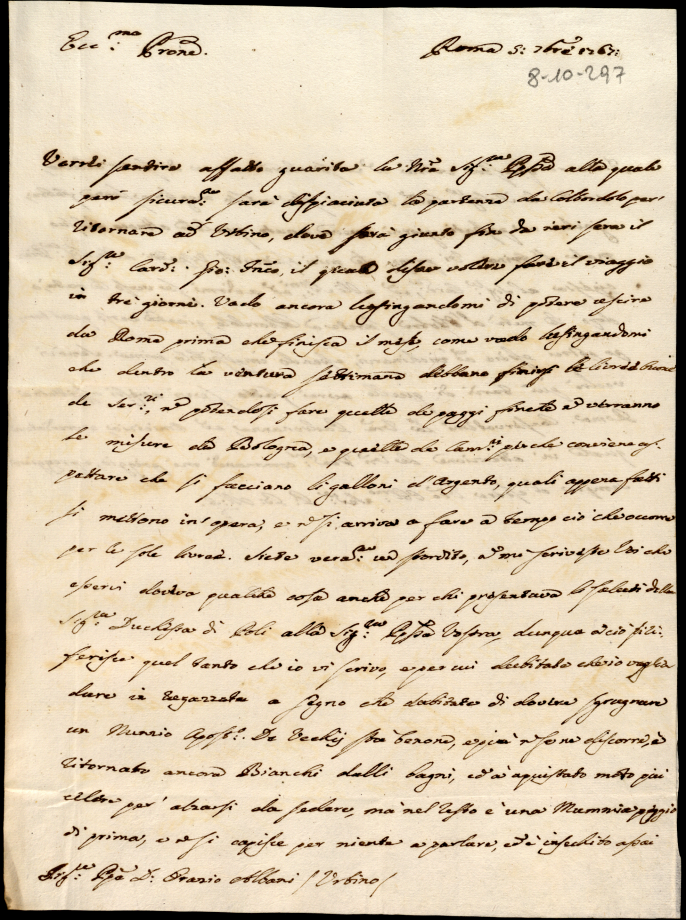 Ecc.ma Prone.
Roma 5: 7bre 1767:
8-10-297
Vorrei sentire affatto guarita la Nra Sig.ra Ppssa alla quale
però sicura.te sarà dispiaciuta la partenza da Colbordolo per
ritornare ad Urbino, dove sarà giunto fin da ieri sera il
Sig.re Card: Gio: Franco, il quale disse voler fare il viaggio
in tre giorni. Vado ancora lusingandomi di potere uscire
da Roma prima che finisca il mese, come vado lusingandomi
che dentro la ventura settimana debbano finirsi le livree
de Ser.ri, nè potendosi fare quelle de paggi finchè non verranno
le misure da Bologna, e quelle de perchè conviene as-
pettare che si facciano li galloni d'Argento, quali appena fatti
si mettono in opera; e si arriva a fare a tempo ciò che occorre
per le sole livree. Siete vera.te un stordito, mi scriveste Voi che
esservi doveva qualche cosa anche per chi presentava li saluti della
Sig.ra Duchessa di Poli alla Sig.ra Ppssa Vostra, dunque a ciò si ri-
ferisce quel tanto che io vi scrivo, e per cui dubitate che io voglia
dare in ragazzate a segno che dubitate di dovere sgrugnare
un Nunzio Apost.o De Vecchij stà benone, e più non se ne discorre, è
ritornato ancora Bianchi dalli bagni, ed à aquistato moto più
celere per alzarsi da sedere, mà nel resto è una Mummia peggio
di prima, e non si capisce per niente a parlare, ed è insechito assai
Sig.re Ppe D: Orazio Albani / Urbino /